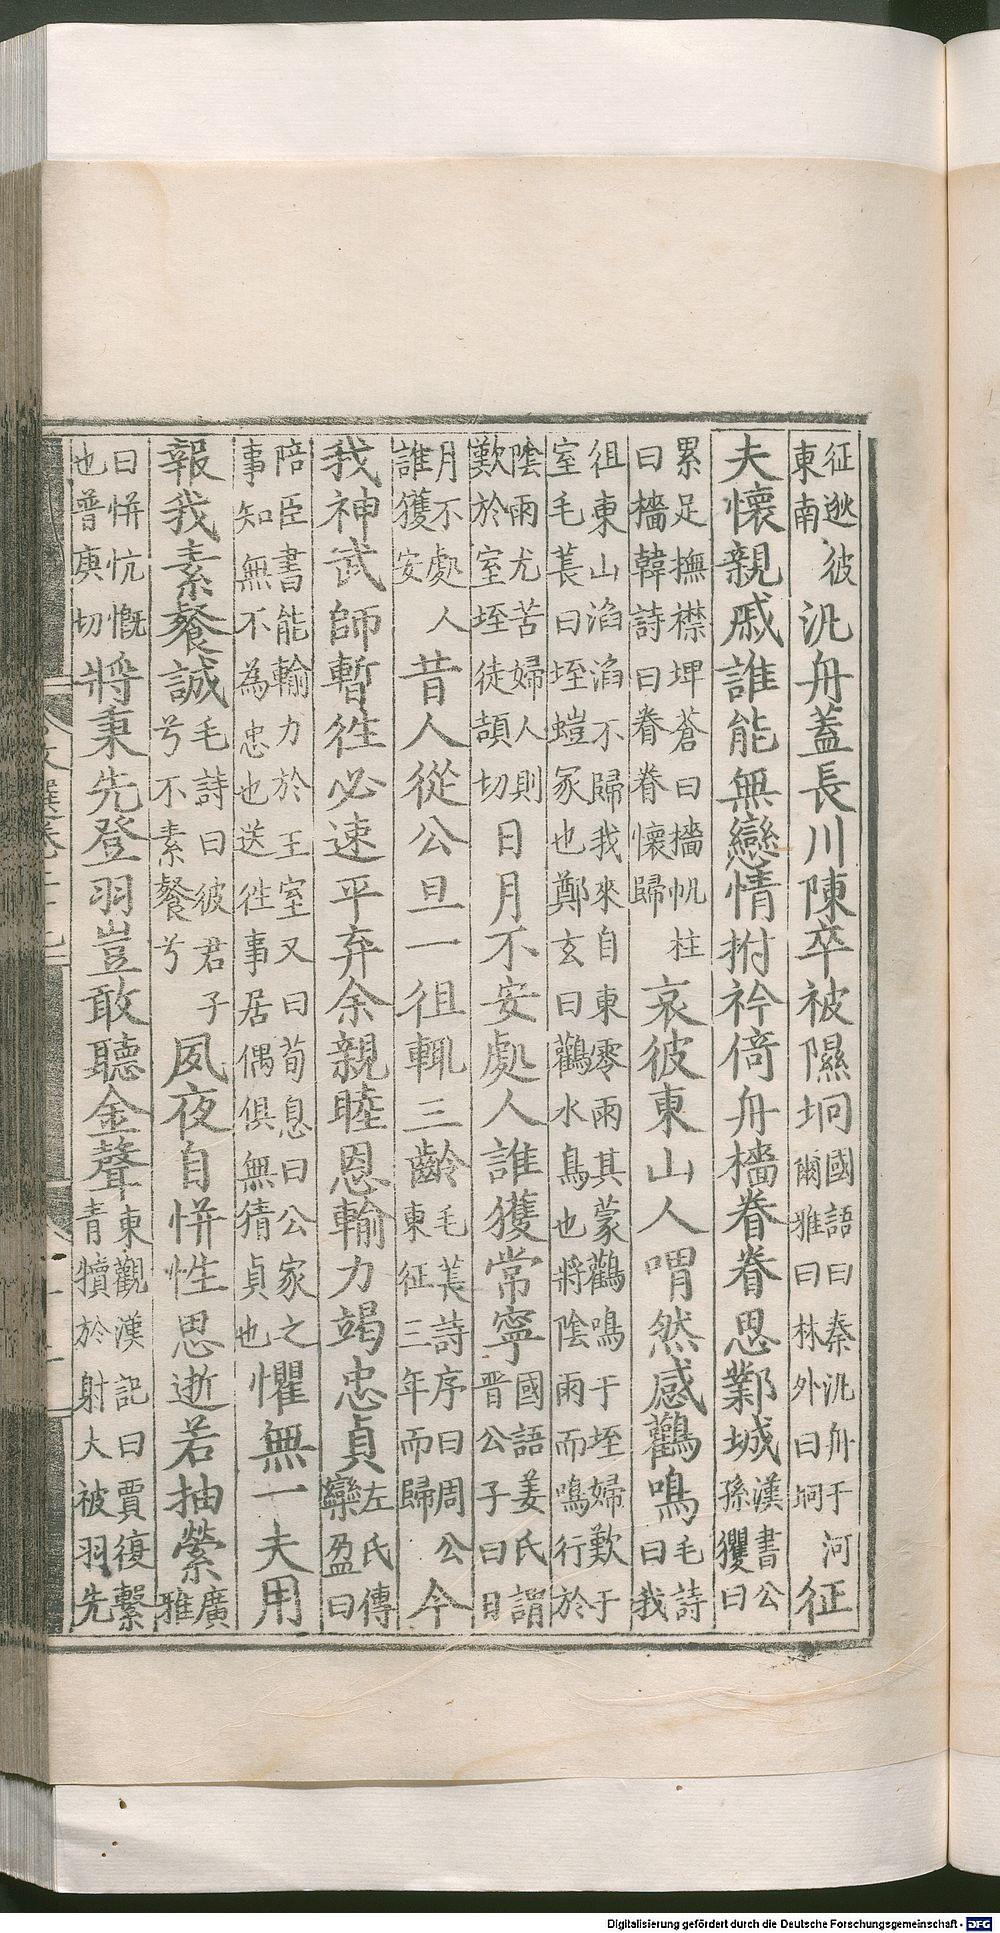 征逖彼東南汎舟蓋長川陳卒被隰坰國語曰秦汎舟于河爾雅曰林外曰坰征
夫懷親戚誰能無戀情拊衿倚舟檣眷眷思鄴城漢書公孫玃曰
累足撫襟埤蒼曰檣帆柱曰檣韓詩曰眷眷懷歸哀彼東山人喟然感鸛鳴毛詩曰我
徂東山滔滔不歸我來自東零雨其蒙鸛鳴于垤婦歎于室毛萇曰垤螘冢也鄭玄曰鸛水鳥也將陰雨而鳴行於
陰雨尤苦婦人則歎於室垤徒頡切日月不安處人誰獲常寧國語姜氏謂晉公子曰日
月不處人誰獲安昔人從公旦一徂輒三齡毛萇詩序曰周公東征三年而歸今
我神武師暫徃必速平弃余親睦恩輸力竭忠貞左氏傳欒盈曰
陪臣書能輸力於王室又曰荀息曰公家之事知無不為忠也送徃事居偶俱無猜貞也懼無一夫用
報我素餐誠毛詩曰彼君子兮不素餐兮夙夜自恲性思逝若抽縈廣雅
曰恲忼慨也普庚切將秉先登羽豈敢聽金聲東觀漢記曰賈復擊青犢於射犬被羽先
Digitalisierung gefördert durch die Deutsche Forschungsgemeinschaft - DFG